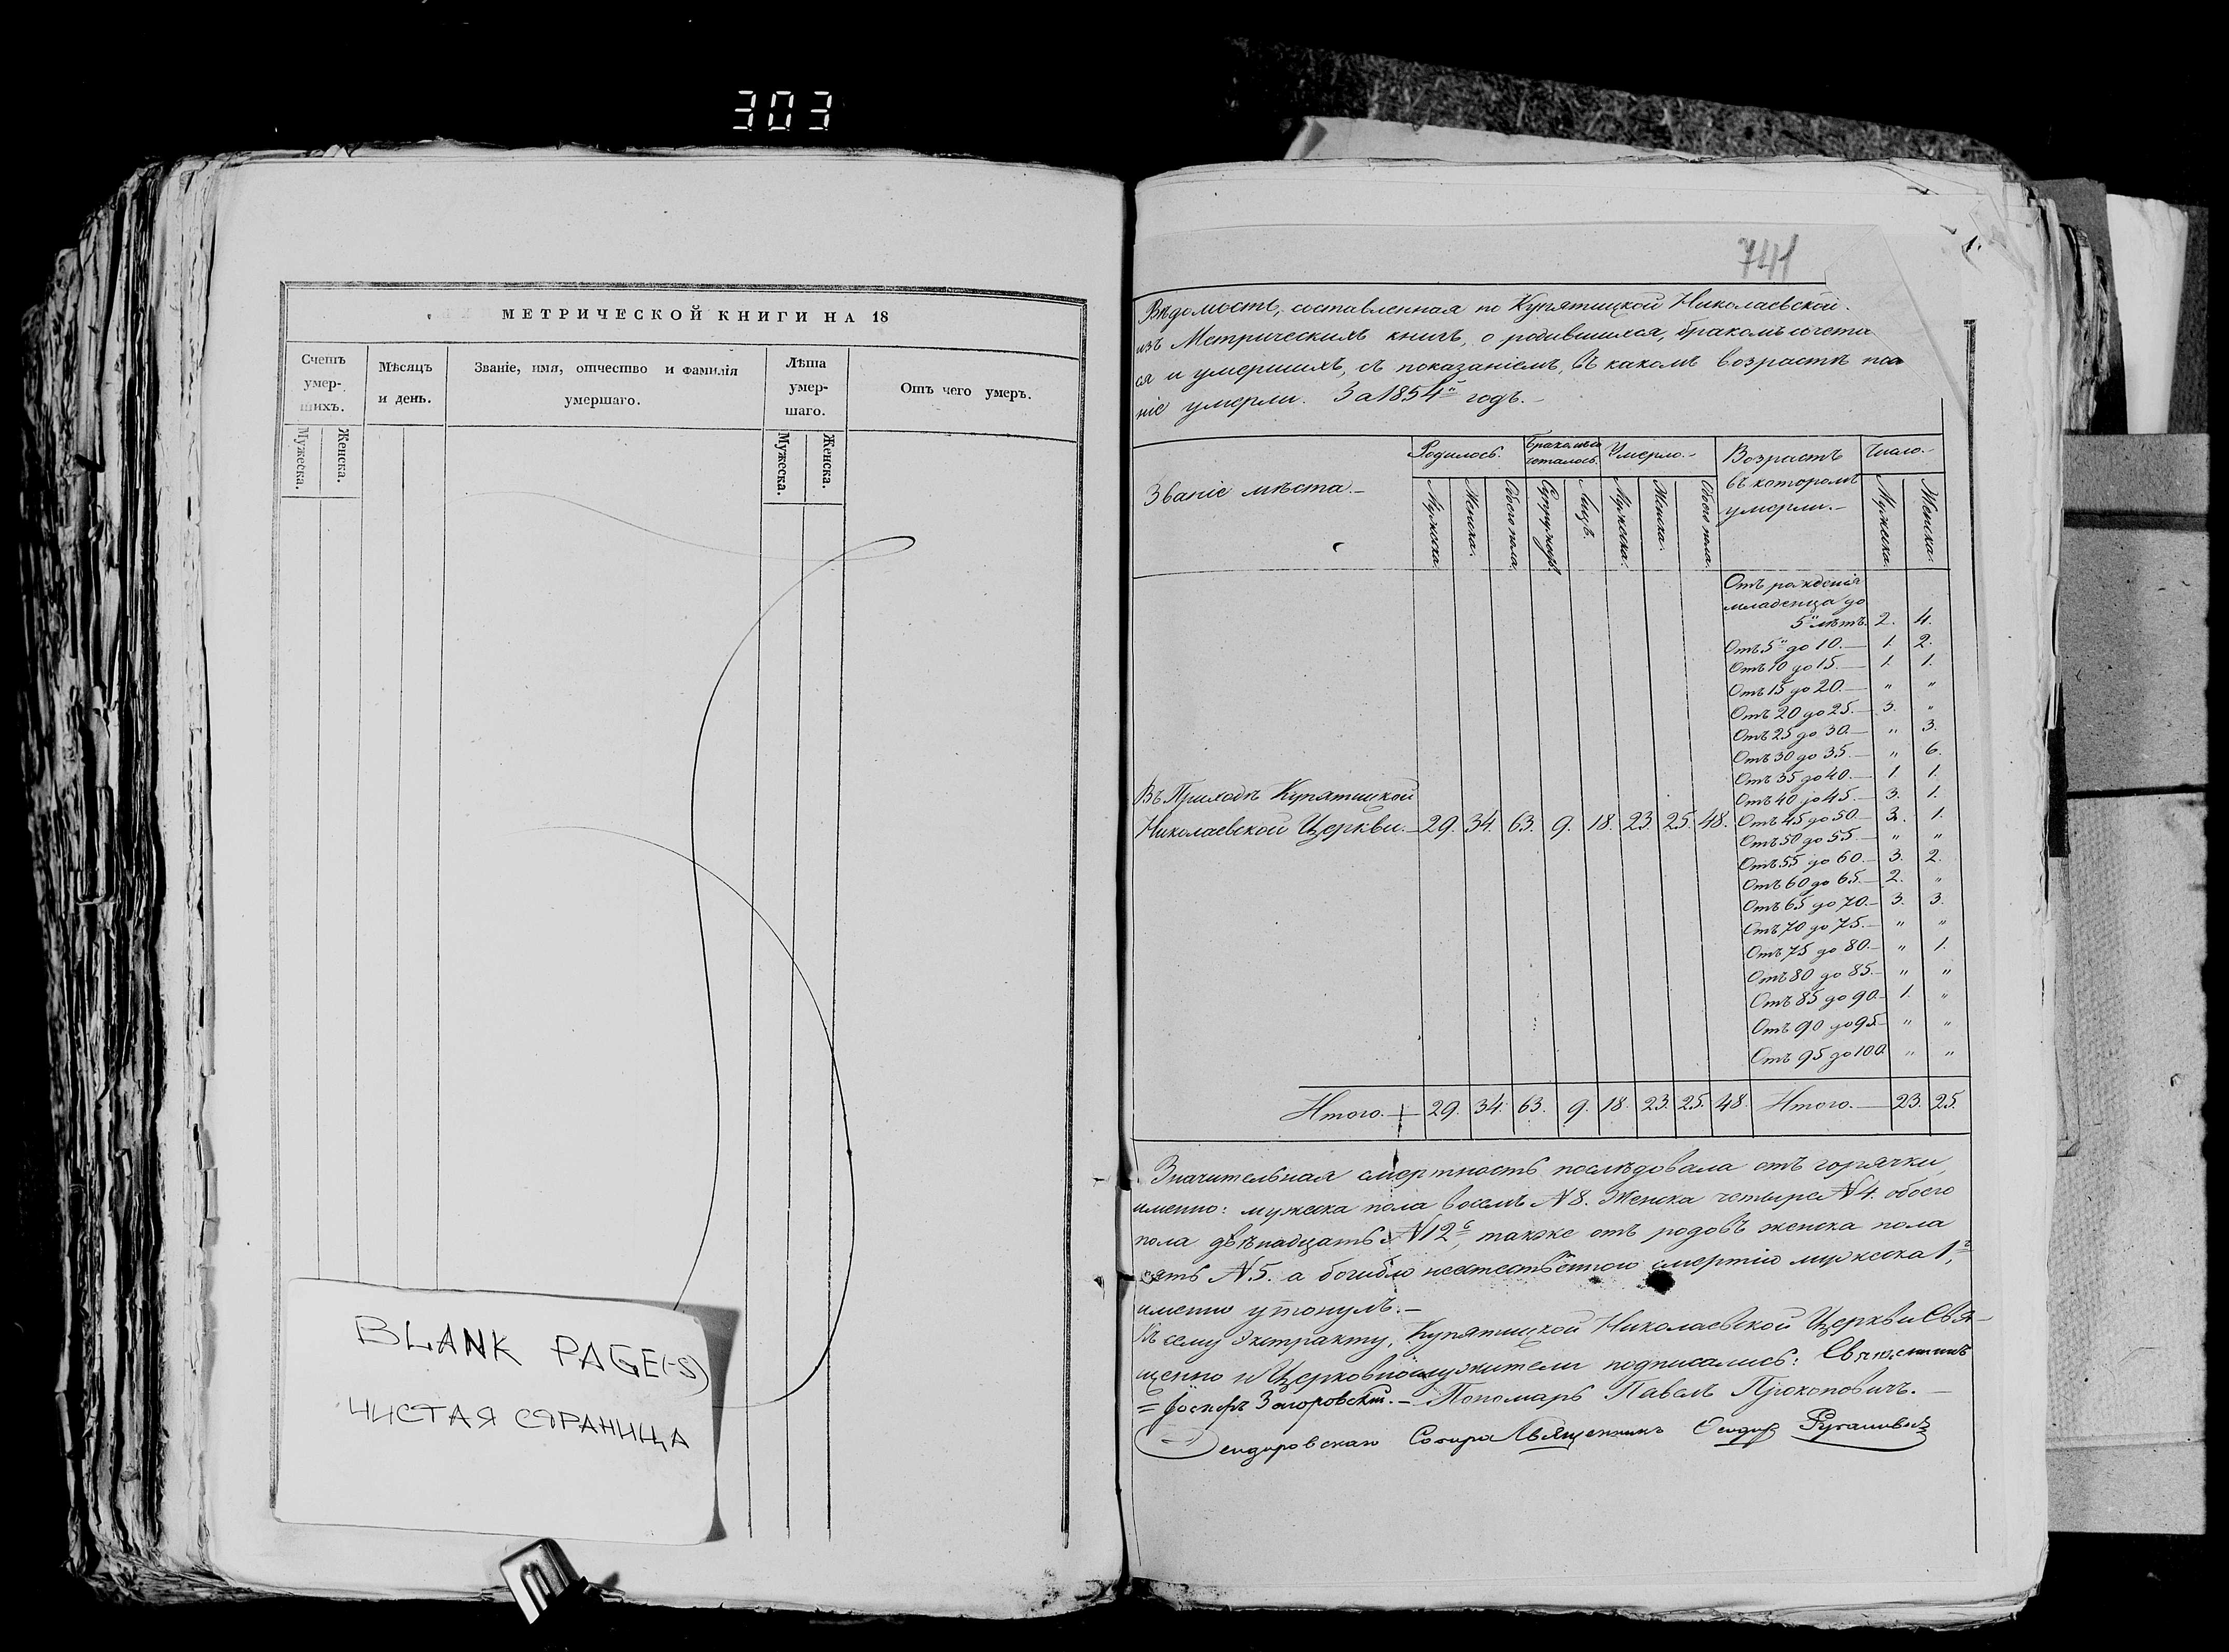 303
МЕТРИЧЕСКОЙ КНИГИ НА 18
Счетъ умер-шихъ.
Мужеска.
Женска.
Мѣсяцъ и день.
Званіе, имя, отчество и фамилія умершаго.
Лѣта умер-шаго.
Мужеска.
Женска.
Отъ чего умеръ.
BLANK PAGE(-S)
ЧИСТАЯ СТРАНИЦА
741
1.
Вѣдомость, составленная по Купятицкой Николаевской
изъ Метрическихъ книгъ, о родившихся, бракомъ сочета
ся и умершихъ, съ показаніемъ, въ какомъ возрастѣ
ніе умерли. За 1854й годъ.-
Званіе мѣста.-
Родилось.
Бракомъ со четалось.
Умерло.-
Возрастъ въ которомъ умерли.-
Число.-
Мужеска. Женска. Обоего пола. Супружеств Лицъ. Мужеска. Женска. Обоего пола. Мужеска. Женска.
Отъ рожденія
младенца до
5"лѣтъ. 2. 4.
Отъ 5" до 10.— 1. 2.
Отъ 10 до 15.— 1. 1.
Отъ 15 до 20.— " "
Отъ 20 до 25.— 3. "
Отъ 25 до 30.— " 3.
Отъ 30 до 35.— " 6.
Отъ 35 до 40.— 1. 1.
Отъ 40 до 45.— 3. 1.
Въ Приходѣ Купятицкой
Николаевской Церкви.— 29. 34. 63. 9. 18. 23. 25. 48. Отъ 45 до 50— 3. 1.
Отъ 50 до 55.— " "
Отъ 55 до 60.— 3. 2.
Отъ 60 до 65.— 2. "
Отъ 65 до 70.— 3. 3.
Отъ 70 до 75.— " "
Отъ 75 до 80.— " 1.
Отъ 80 до 85.— " "
Отъ 85 до 90.— 1. "
Отъ 90 до 95.— " "
Отъ 95 до 100. " "
Итого.— 29. 34. 63. 9. 18. 23. 25. 48. Итого.— 23. 25.
Значительная смертность послѣдовала отъ горячки,
именно: мужеска пола восемь N 8. Женска четыре N 4. обоего
пола двѣнадцать N 12ь, также отъ родовъ женска пола
пять N. 5. а погибло неестественною смертію мужеска 1,
именно утонулъ.-
Къ сему экстракту, Купятицкой Николаевской Церкви Свя-
щенно и Церковнослужители подписались: Священникъ
= Іосифъ Загоровскій.— Пономарь Павелъ Прокоповичъ.—
Ѳеодоровскаго Собора Священникъ Ѳеодоръ